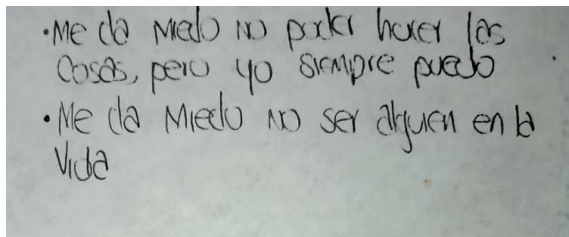 • Me da miedo no poder hacer las
cosas, pero yo siempre puedo
• Me da miedo no ser alguien en la
vida